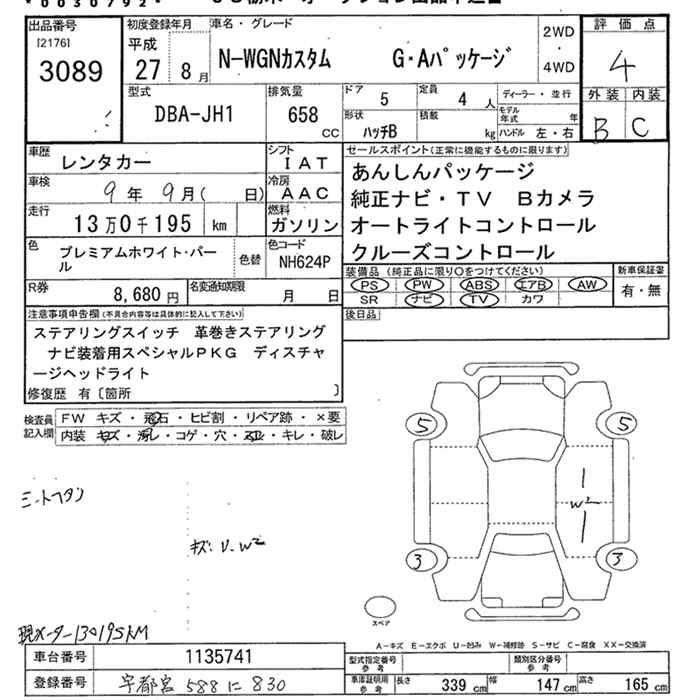 *0030792*
出品番号
[2176]
3089
初度登録年月
平成
27年 8月
車名・グレード
N-WGNカスタム G・Aパッケージ
2WD
・
4WD
評価点
4
外装 内装
B C
型式
DBA-JH1
排気量
658
CC
ドア
5
定員
4人
ディーラー・並行
形状
ハッチB
積載
kg
モデル年式 年
ハンドル 左・右
車歴
レンタカー
シフト
IAT
車検
9年 9月( 日)
冷房
AAC
走行
13万0千195 km
燃料
ガソリン
色
プレミアムホワイト・パール
色替
色コード
NH624P
R券
8,680円
名変通知期限
月 日
セールスポイント(正常に機能するものに限ります)
あんしんパッケージ
純正ナビ・TV Bカメラ
オートライトコントロール
クルーズコントロール
装備品(純正品に限り○をつけてください)
PS PW ABS エアB AW
SR ナビ TV カワ
新車保証書
有・無
後日品
注意事項申告欄(不具合内容等は具体的に記入して下さい)
ステアリングスイッチ 革巻きステアリング
ナビ装着用スペシャルPKG ディスチャ
ージヘッドライト
修復歴 有〔箇所 〕
検査員
記入欄
FW キズ・飛石・ヒビ割・リペア跡・×要
内装 キズ・汚レ・コゲ・穴・・キレ・破レ
5 5
W2
3 3
シートヘタリ
キズ・U・W2
現メーター130195KM
スペア
A-キズ E-エクボ U-凹み W-補修跡 S-サビ C-腐食 XX-交換済
車台番号
1135741
登録番号
宇都宮 588 に 830
型式指定番号
参考
類別区分番号
参考
車庫証明用
参考
長さ 339cm 幅 147cm 高さ 165cm